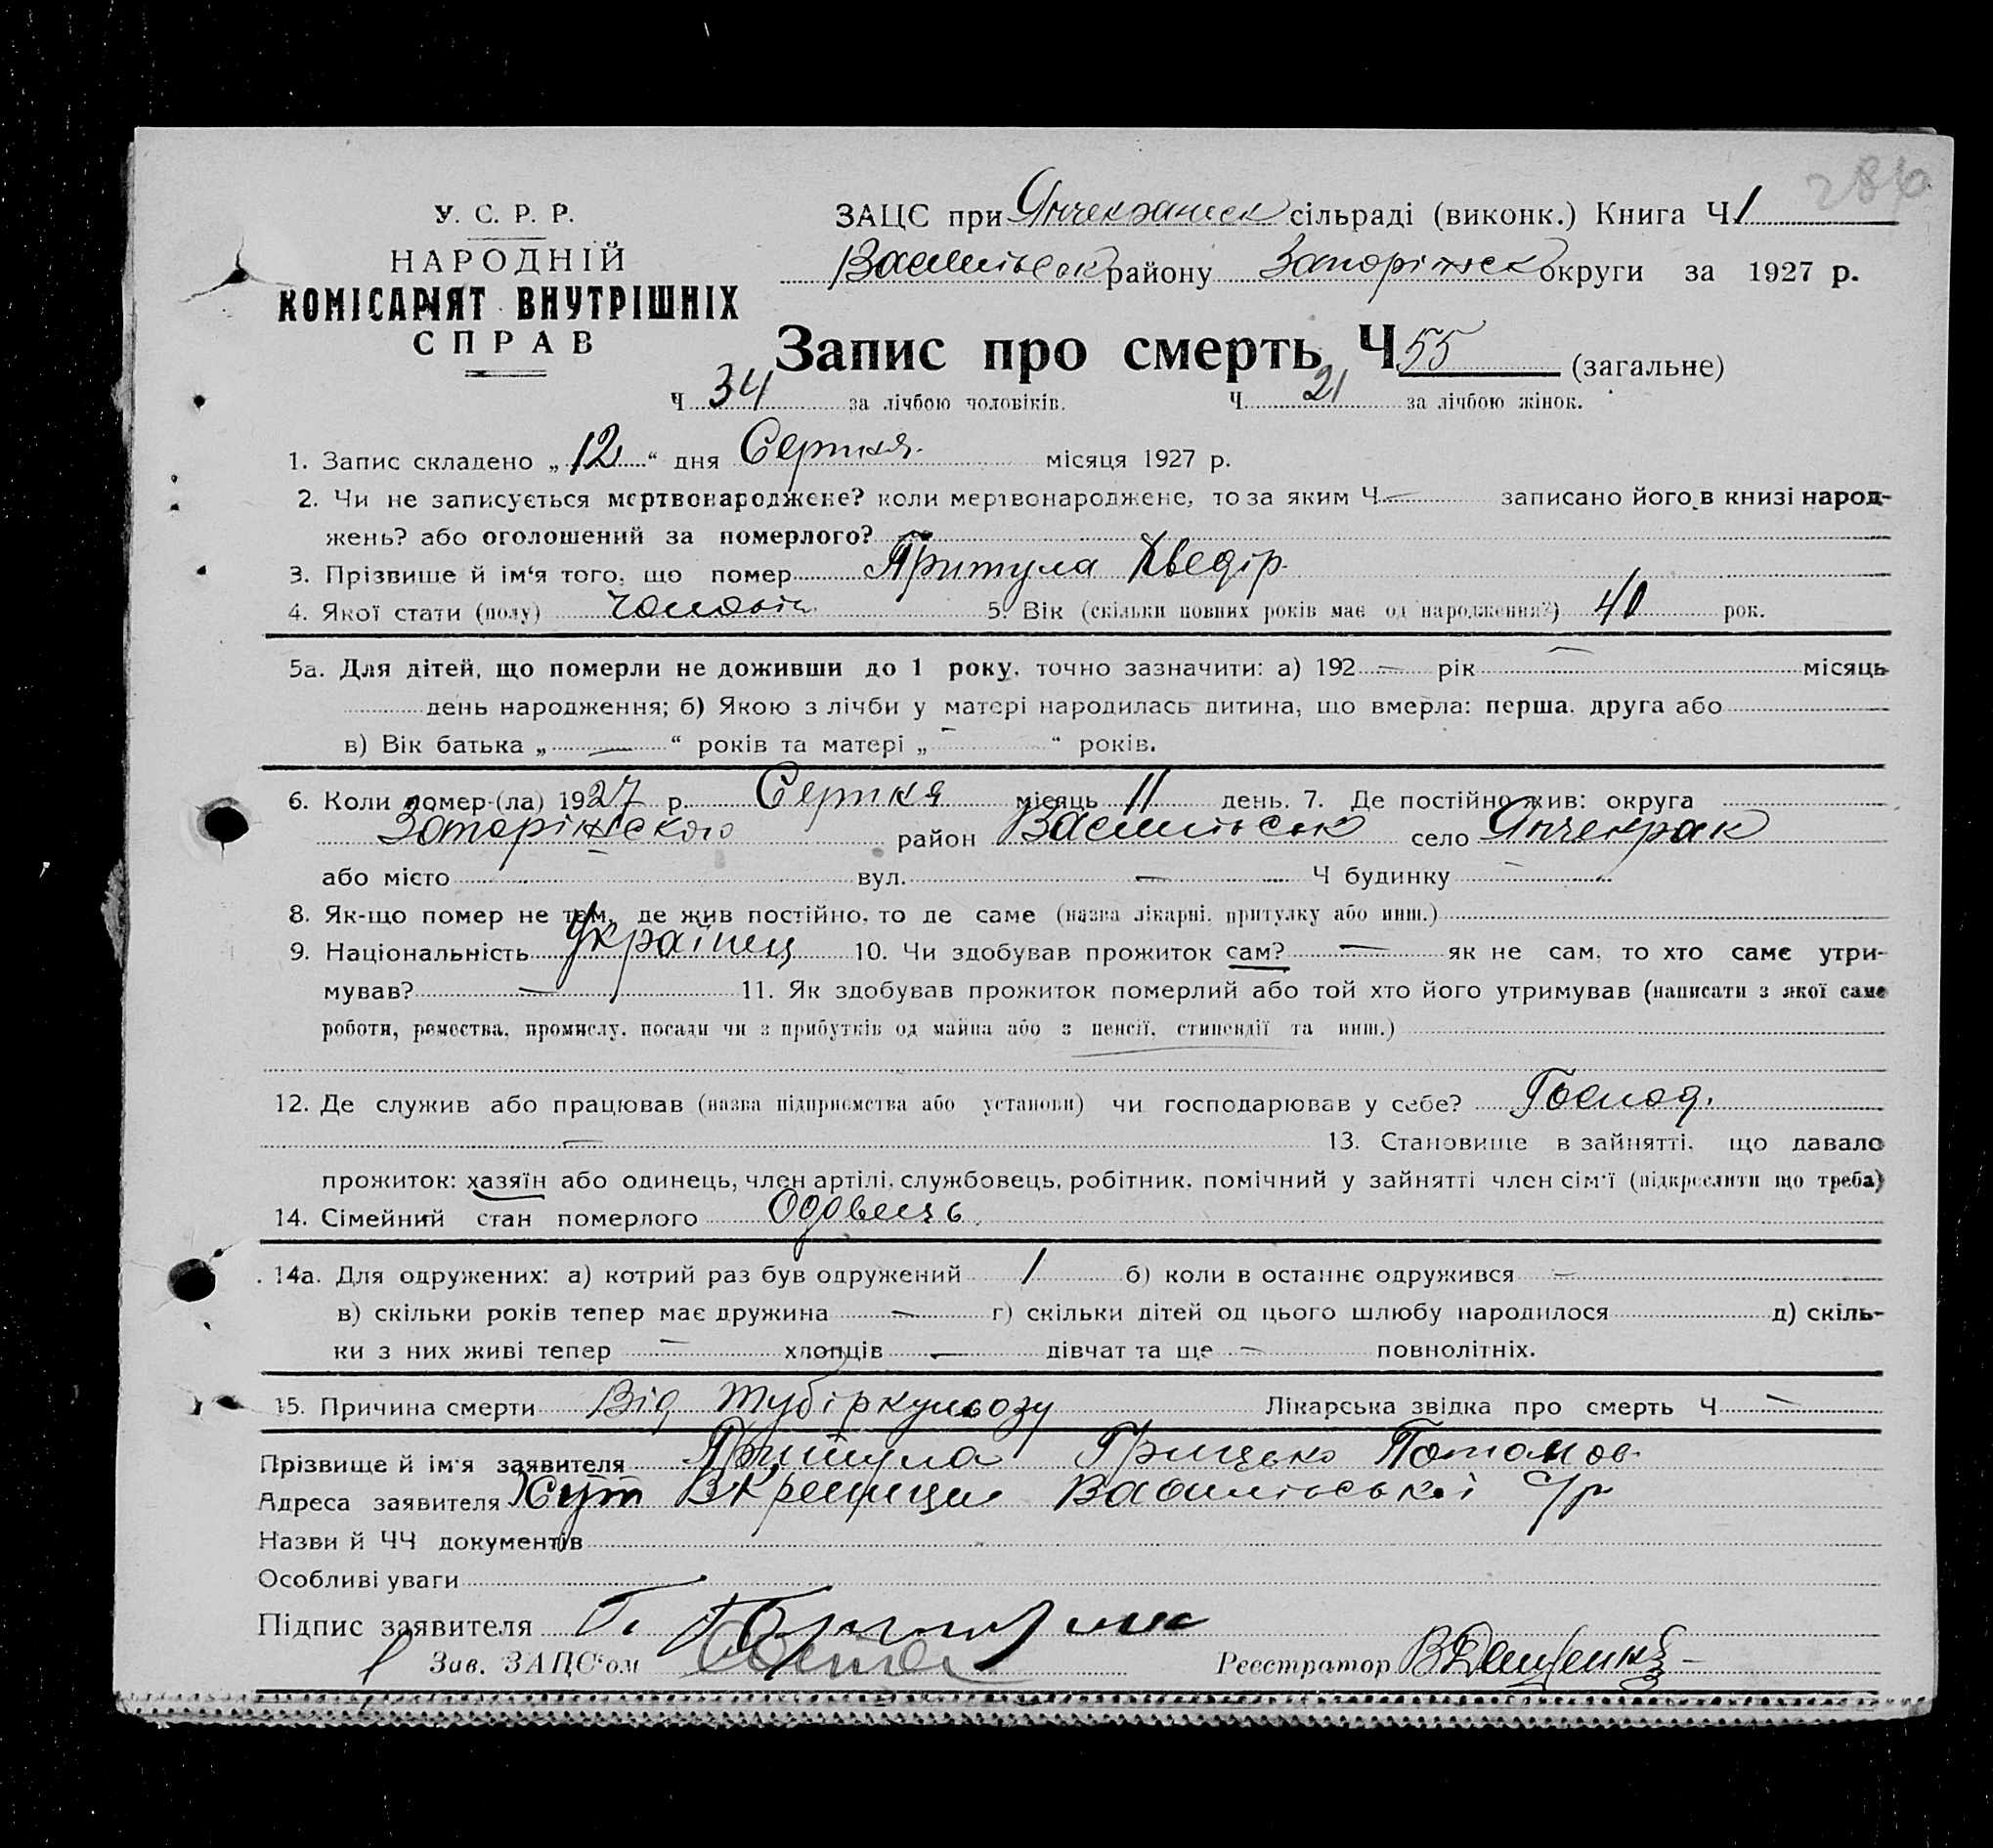 2840
У. С. Р. Р.
НАРОДНІЙ
КОМІСАРІЯТ ВНУТРІШНІХ
СПРАВ
ЗАЦС при Янчекракськ сільраді (виконк.) Книга Ч. 1
Василівськ району Запоріжськ округи за 1927 р.
Запис про смерть Ч 55 (загальне)
Ч 34 за лічбою чоловіків. Ч. 21 за лічбою жінок.
1. Запис складено „ 12 “ дня Серпня місяця 1927 р.
2. Чи не записується мертвонароджене? коли мертвонароджене, то за яким Ч. — записано його в книзі народ-
жень? або оголошений за померлого?
3. Прізвище й ім‘я того, що помер Притула Хведір
4. Якої стати (полу) чоловіч. 5. Вік (скільки повних років має од народження?) 40 рок.
5а. Для дітей, що померли не доживши до 1 року, точно зазначити: а) 192 — рік — місяць
день народження; б) Якою з лічби у матері народилась дитина, що вмерла: перша, друга або
в) Вік батька „ — “ років та матері „ — “ років.
6. Коли помер-(ла) 1927 р. Серпня місяць 11 день. 7. Де постійно жив: округа
Запоріжського район Василівськ село Янчекрак
або місто — вул. — Ч будинку —
8. Як-що помер не там, де жив постійно, то де саме (назва лікарні, притулку або инш.)
9. Національність Українец 10. Чи здобував прожиток сам? — як не сам, то хто саме утри-
мував? — 11. Як здобував прожиток померлий або той хто його утримував (написати з якої саме
роботи, ремества, промислу, посади чи з прибутків од майна або з пенсії, стипендії та инш.)
12. Де служив або працював (назва підприємства або установи) чи господарював у себе? Господ.
— 13. Становище в зайнятті, що давало
прожиток: хазяїн або одинець, член артілі, службовець, робітник, помічний у зайнятті член сім‘ї (підкреслити що треба)
14. Сімейний стан померлого Одовець.
14а. Для одружених: а) котрий раз був одружений 1 б) коли в останнє одружився —
в) скільки років тепер має дружина — г) скільки дітей од цього шлюбу народилося д) скіль-
ки з них живі тепер — хлопців — дівчат та ще — повнолітніх.
15. Причина смерти Від тубіркульозу Лікарська звідка про смерть Ч —
Прізвище й ім‘я заявителя Притула Грицько Потапов
Адреса заявителя Хут Василівської с/р
Назви й ЧЧ документів
Особливі уваги
Підпис заявителя Г. Притула
Зав. ЗАЦС‘ом Реєстратор